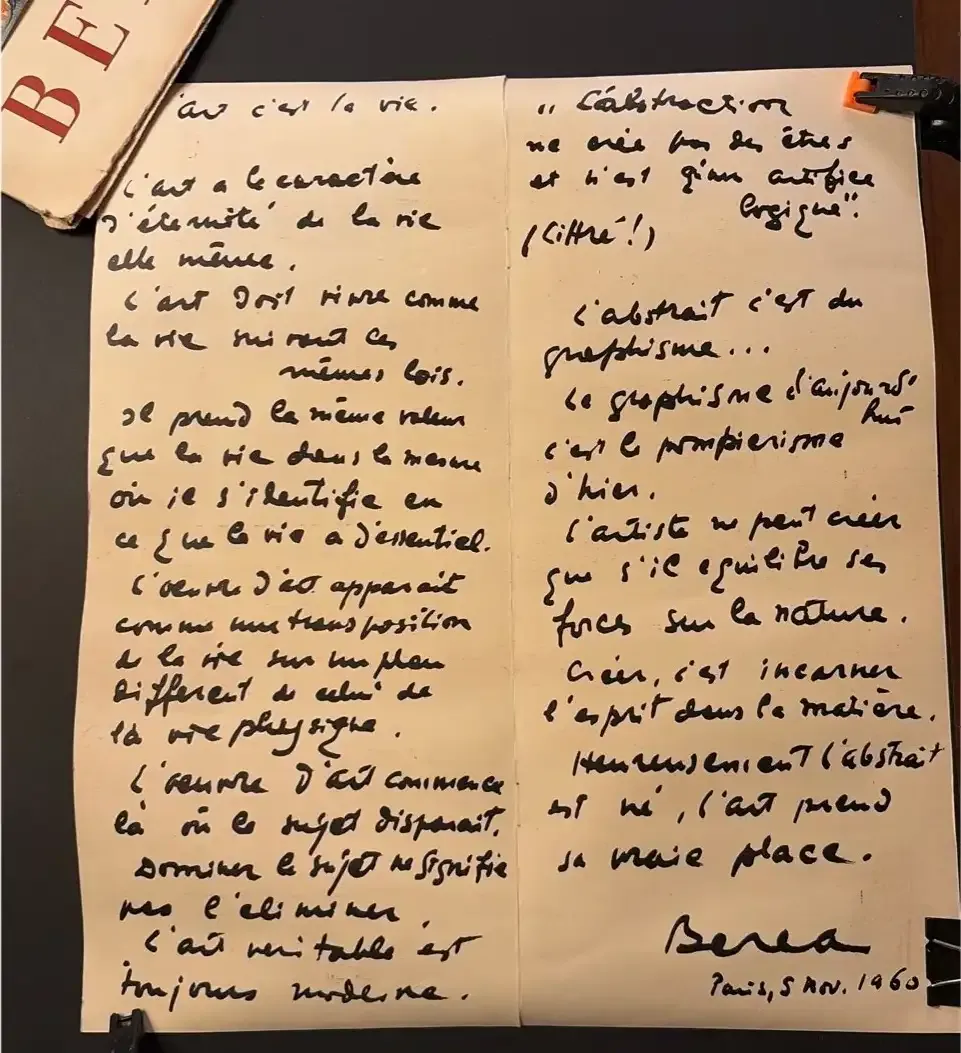 BE
'art c'est la vie.
L'art a le caractère
d'éternité de la vie
elle même.
L'art doit vivre comme
la vie suivant les
mêmes lois.
Il prend la même valeur
que la vie dans la mesure
où il s'identifie en
ce que la vie a d'essentiel.
L'oeuvre d'art apparait
comme une transposition
de la vie sur un plan
different de celui de
la vie physique.
L'oeuvre d'art commence
là où le sujet disparait.
Dominer le sujet ne signifie
pas l'eliminer.
L'art veritable est
toujours moderne.
"L'abstraction
ne crée pas des êtres
et n'est qu'un artifice
logique".
(Littré!)
L'abstrait c'est du
graphisme...
Le graphisme d'aujourd'
hui
c'est le pompierisme
d'hier.
L'artiste ne peut créer
que s'il equilibre ses
forces sur la nature.
Créer, c'est incarner
l'esprit dans la matière.
Heureusement l'abstrait
est né, l'art prend
sa vraie place.
Berea
Paris, 5 Nov. 1960